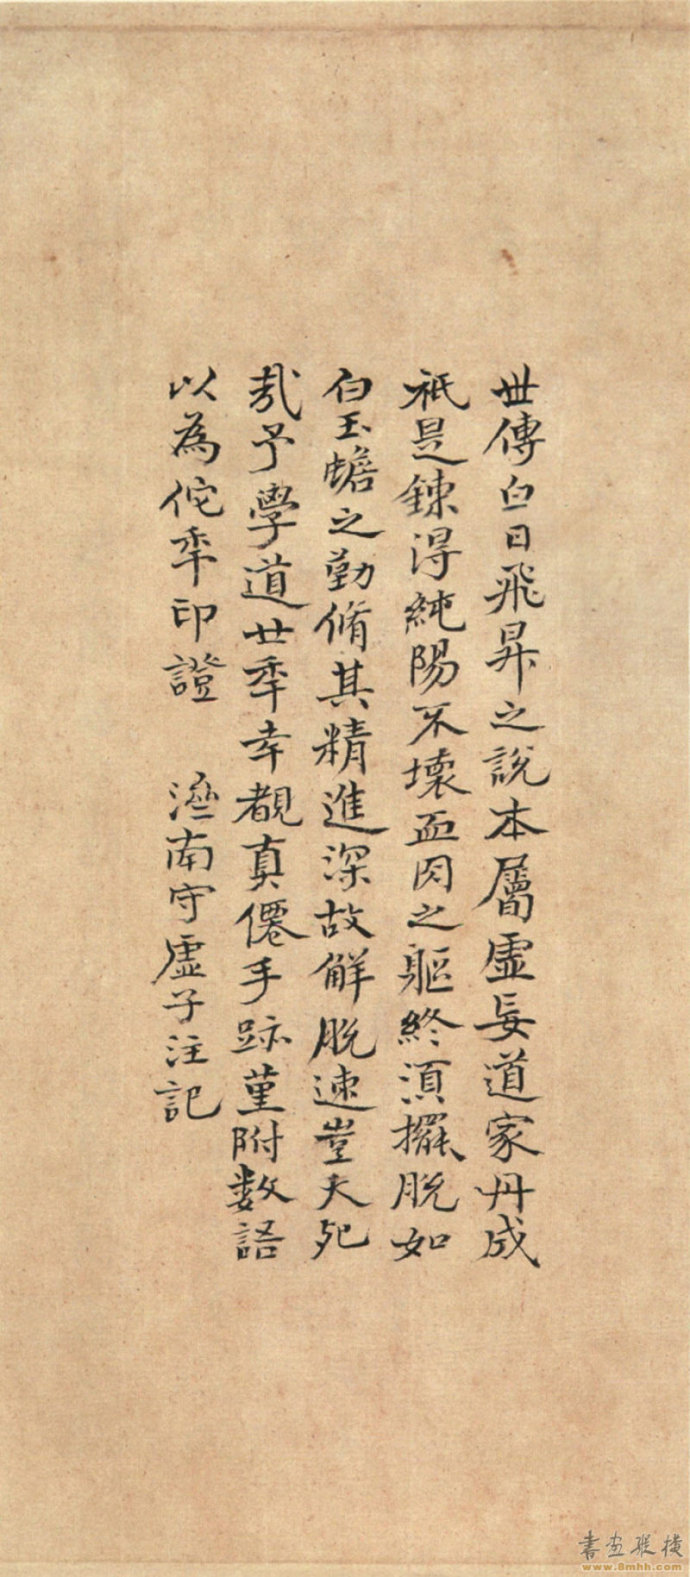 世傳白日飛昇之說本屬虛妄道家丹成
祇是鍊得純陽不壞血肉之軀終須擺脫如
白玉蟾之勤脩其精進深故解脫速豈夭死
哉予學道廿年幸覩真僊手跡堇附數語
以為佗年印證 南守虛子注記
書畫縱橫
www.8mhh.com